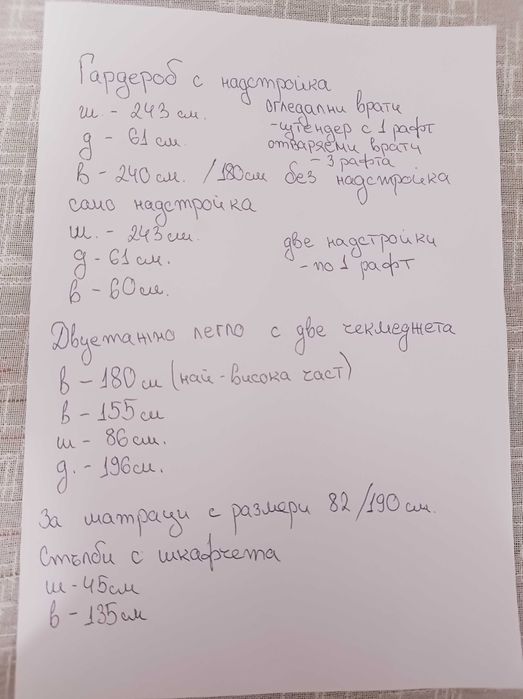 Гардероб с надстройка
ш. - 243 см. огледални врати
д - 61 см. - щендер с 1 рафт
отваряеми врати
- 3 рафта
в - 240 см. /180 см без надстройка
само надстройка
ш. - 243 см. две надстройки
д - 61 см. - по 1 рафт
в - 60 см.
Двуетажно легло с две чекмеджета
в - 180 см (най-висока част)
в - 155 см
ш - 86 см.
д. - 196 см.
За матраци с размери 82/190 см.
Стълби с шкафчета
ш - 45 см
в - 135 см